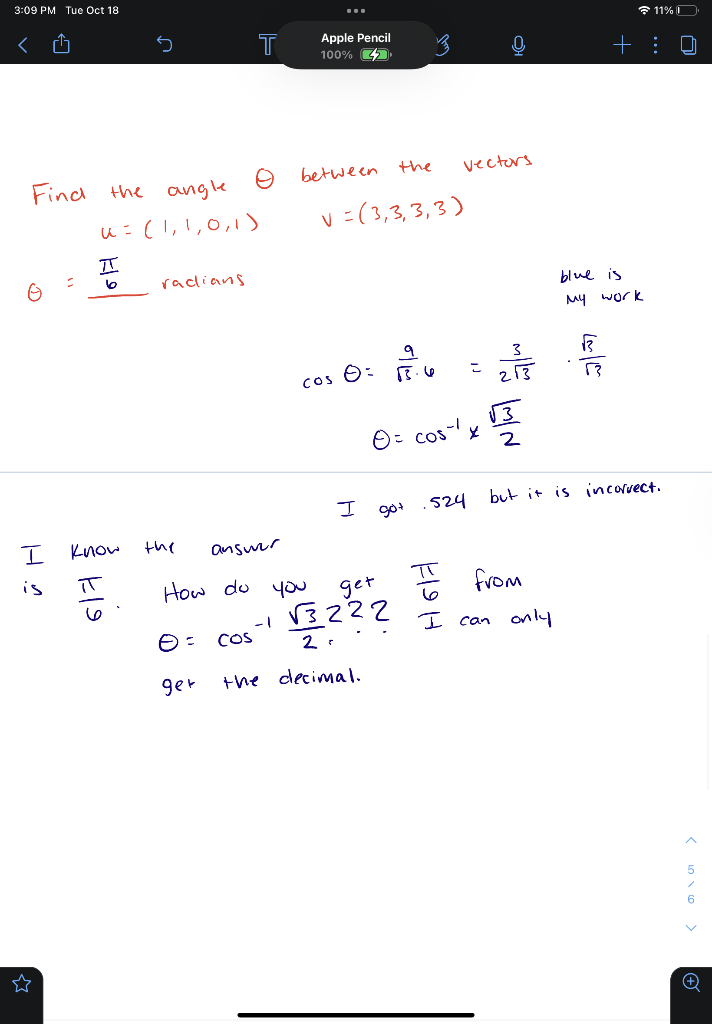 3:09 PM Tue Oct 18
11%
Apple Pencil
100%
T
Find the angle θ between the vectors
u = (1, 1, 0, 1) v = (3, 3, 3, 3)
θ = π/6 radians
blue is
my work
cos θ = 9/(√3 · 6) = 3/(2√3) · √3/√3
θ = cos⁻¹ × √3/2
I got .524 but it is incorrect.
I know the answer
is π/6. How do you get π/6 from
θ = cos⁻¹ √3/2 ??? I can only
get the decimal.
5
/
6